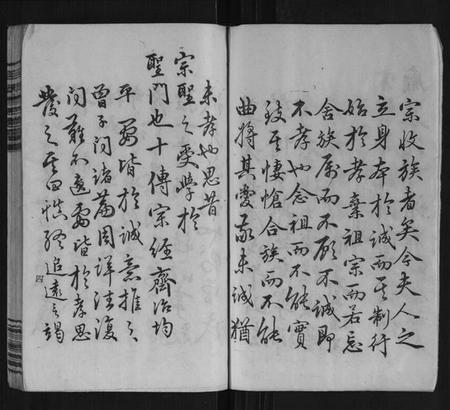 宗收族者矣今夫人之
立身本於誠而其制行
始於孝棄祖宗而若忘
舍族屬而不顧不誠即
不孝也念祖而不能實
致其悽愴合族而不能
曲將其愛敬未誠猶
未孝也思昔
宗聖之受學於
聖門也十傳宗經齊治均
平要皆於誠意推之
曾子問諸篇周詳往復
問難不遺要皆於孝思
發之其曰慎終追遠之竭
四